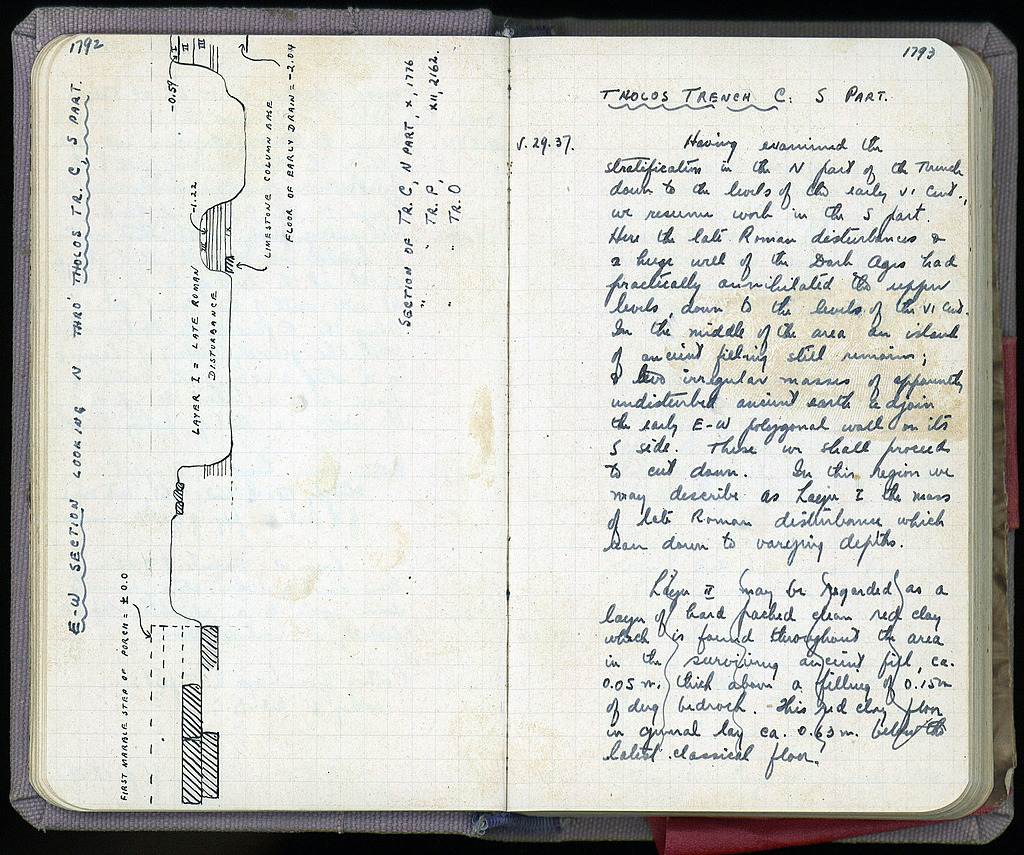 1792
E-W SECTION LOOKING N THRO' THOLOS TR. C, S PART.
FIRST MARBLE STEP OF PORCH = ± 0.0
-0.59
I
II
III
-1.22
III
IX
LAYER I = LATE ROMAN
DISTURBANCE
LIMESTONE COLUMN BASE
FLOOR OF EARLY DRAIN = -2.04
SECTION OF TR. C, N PART, X, 1776
" " TR. P, XII, 2162.
" " TR. O
1793
THOLOS TRENCH C: S PART.
V. 29. 37. Having examined the
stratification in the N part of the Trench
down to the levels of the early VI Cent.,
we resume work in the S part.
Here the late Roman disturbances &
a huge well of the Dark Ages had
practically annihilated the upper
levels, down to the levels of the VI Cent.
In the middle of the area an island
of ancient filling still remains;
& two irregular masses of apparently
undisturbed ancient earth adjoin
the early E-W polygonal wall on its
S side. These we shall proceed
to cut down. In this region we
may describe as Layer I the mass
of late Roman disturbance which
ran down to varying depths.
Layer II may be regarded as a
layer of hard packed clean red clay
which is found throughout the area
in the surviving ancient fill, ca.
0.05 m. thick above a filling of 0.15m
of dug bedrock. This red clay floor
in general lay ca. 0.63 m. below the
latest classical floor.